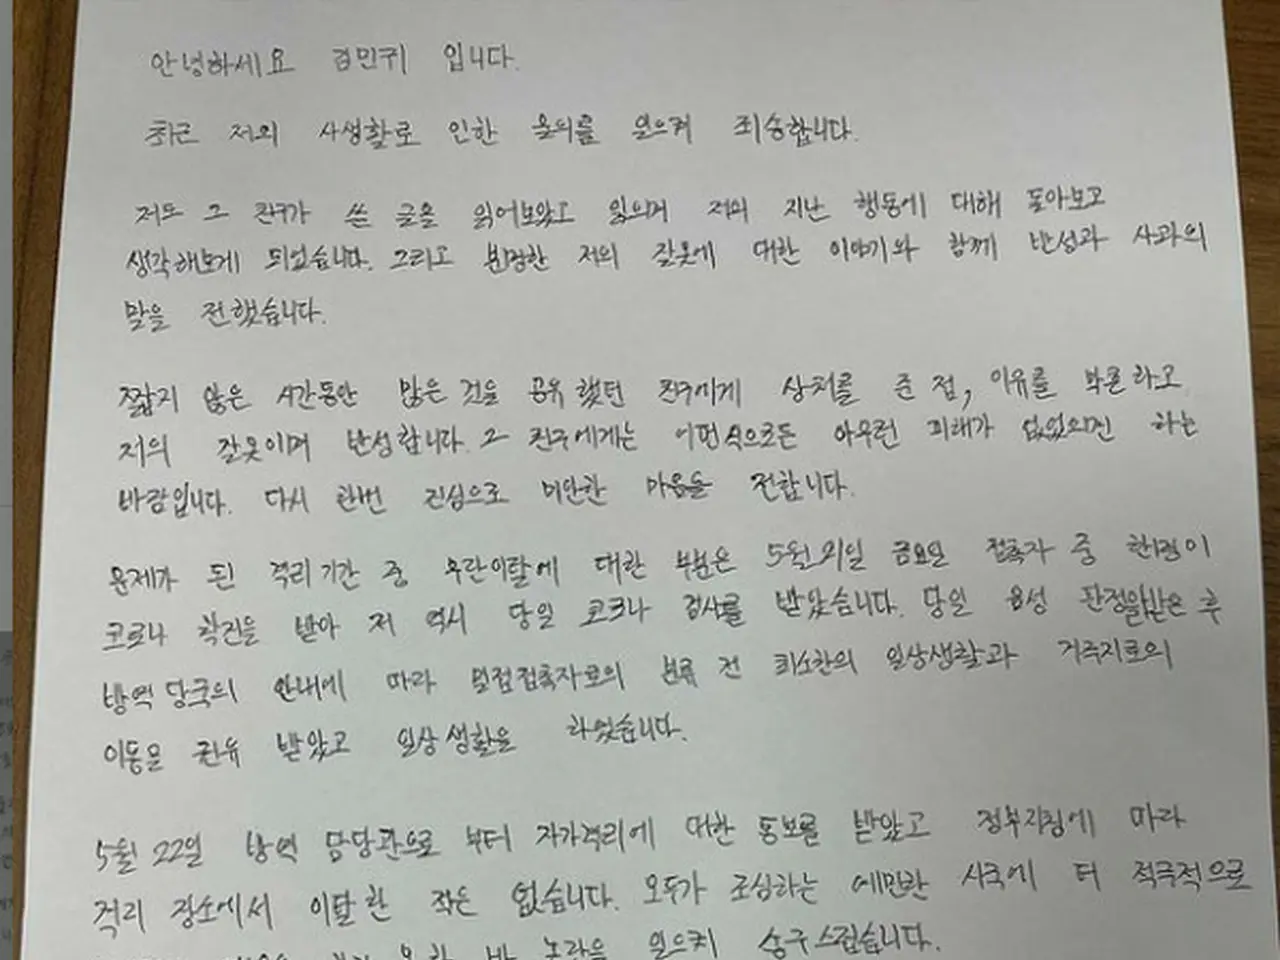 안녕하세요 김민귀 입니다.
최근 저의 사생활로 인한 물의를 일으켜 죄송합니다.
저도 그 친구가 쓴 글을 읽어보았고 읽으며 저의 지난 행동에 대해 돌아보고
생각해보게 되었습니다. 그리고 분명한 저의 잘못에 대한 이야기와 함께 반성과 사과의
말을 전했습니다.
짧지 않은 시간동안 많은 것을 공유했던 친구에게 상처를 준 점, 이유를 불문하고
저의 잘못이며 반성합니다. 그 친구에게는 어떤식으로든 아무런 피해가 없었으면 하는
바람입니다. 다시 한번 진심으로 미안한 마음을 전합니다.
문제가 된 격리기간 중 무단이탈에 대한 부분은 5월 21일 금요일 접촉자 중 한명이
코로나 확진을 받아 저 역시 당일 코로나 검사를 받았습니다. 당일 음성 판정을 받은 후
방역당국의 안내에 따라 밀접접촉자로의 분류 전 최소한의 일상생활과 거주지로의
이동을 권유 받았고 일상생활을 하였습니다.
5월 22일 방역 담당관으로 부터 자가격리에 대한 통보를 받았고 정부지침에 따라
격리 장소에서 이탈한 적은 없습니다. 모두가 조심하는 예민한 시국에 더 적극적으로
못한 바 논란을 일으켜 송구스럽습니다.